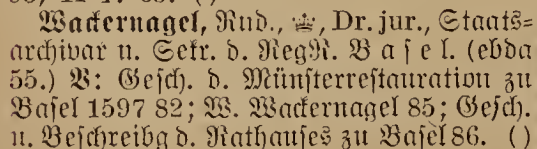 Wackernagel, Rud., ♕, Dr. jur., Staats=
archivar u. Sekr. d. RegR. Basel. (ebda
55.) V: Gesch. d. Münsterrestauration zu
Basel 1597 82; W. Wackernagel 85; Gesch.
u. Beschreibg d. Rathauses zu Basel 86. ()